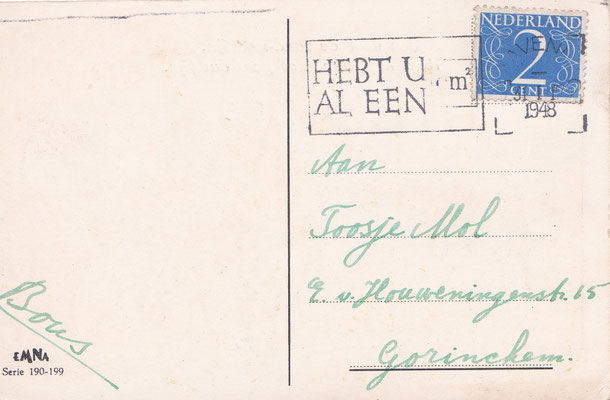 NEDERLAND
2
CENT
HEBT U
AL EEN m²
1948
Aan
Toosje Mol
E. v. Houweningenstr. 15
Gorinchem.
Bous
EMNA
Serie 190-199